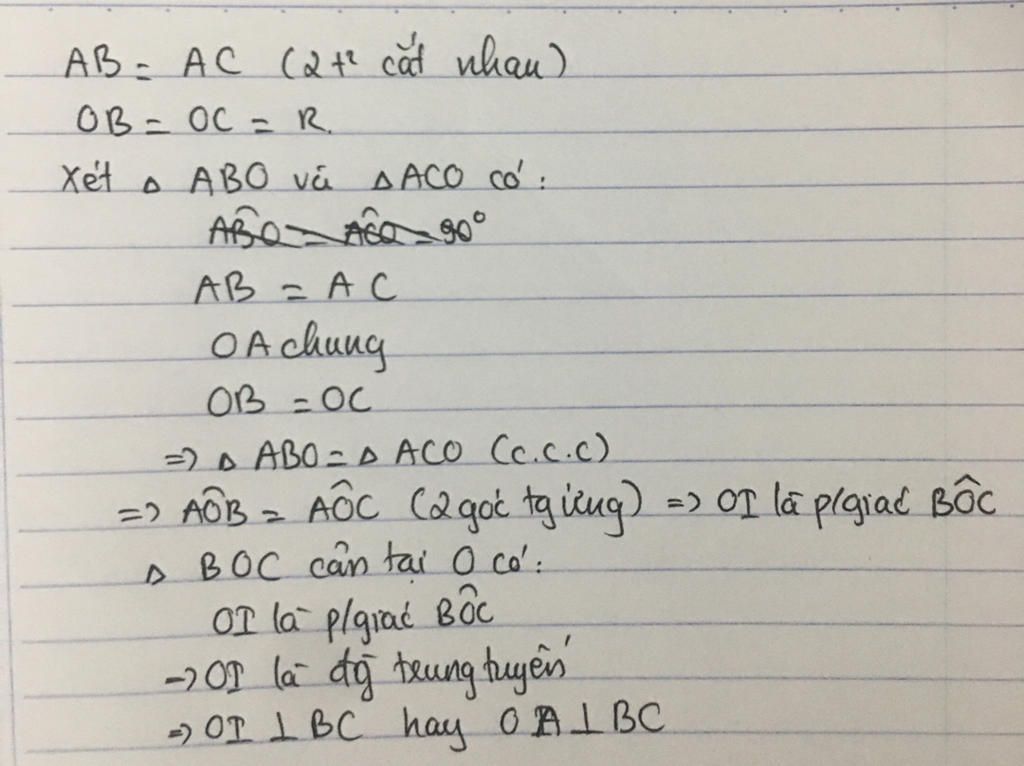 AB = AC (2 t² cắt nhau)
OB = OC = R.
Xét Δ ABO và Δ ACO có:
AB̂O = AĈO = 90°
AB = AC
OA chung
OB = OC
=> Δ ABO = Δ ACO (c.c.c)
=> AÔB = AÔC (2 góc tg ứng) => OI là p/giác BÔC
Δ BOC cân tại O có:
OI là p/giác BÔC
-> OI là đg trung tuyến
=> OI ⊥ BC hay OA ⊥ BC